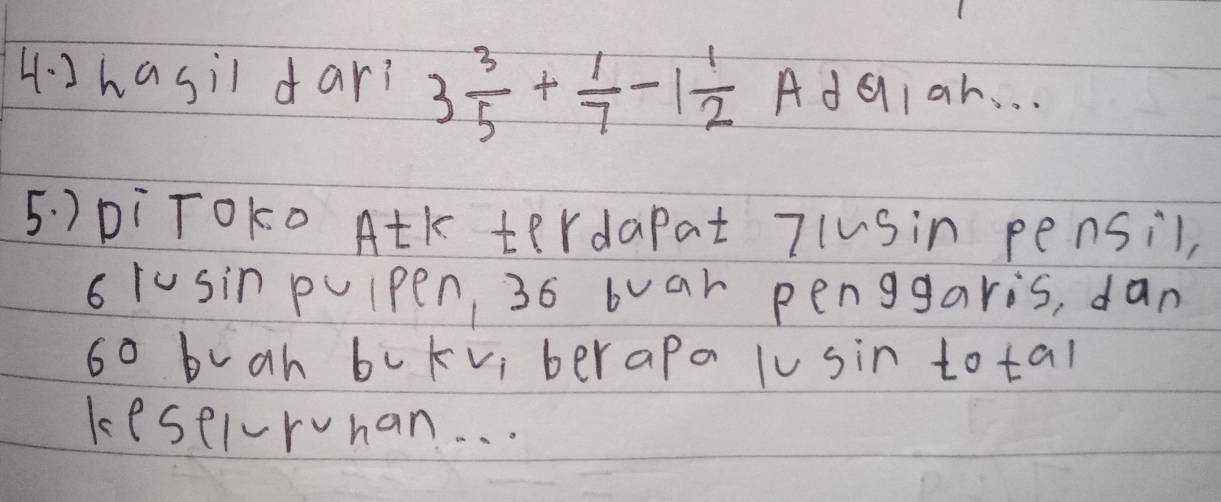 4.) hasil dari 3 3/5 + 1/7 - 1 1/2 Adalah...
5.) Di Toko Atk terdapat 7 lusin pensil,
6 lusin pulpen, 36 buah penggaris, dan
60 buah buku, berapa lusin total
keseluruhan...